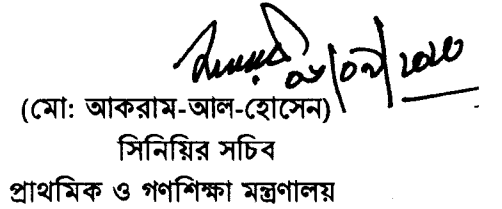 (মো: আকরাম-আল-হোসেন)
সিনিয়ির সচিব
প্রাথমিক ও গণশিক্ষা মন্ত্রণালয়